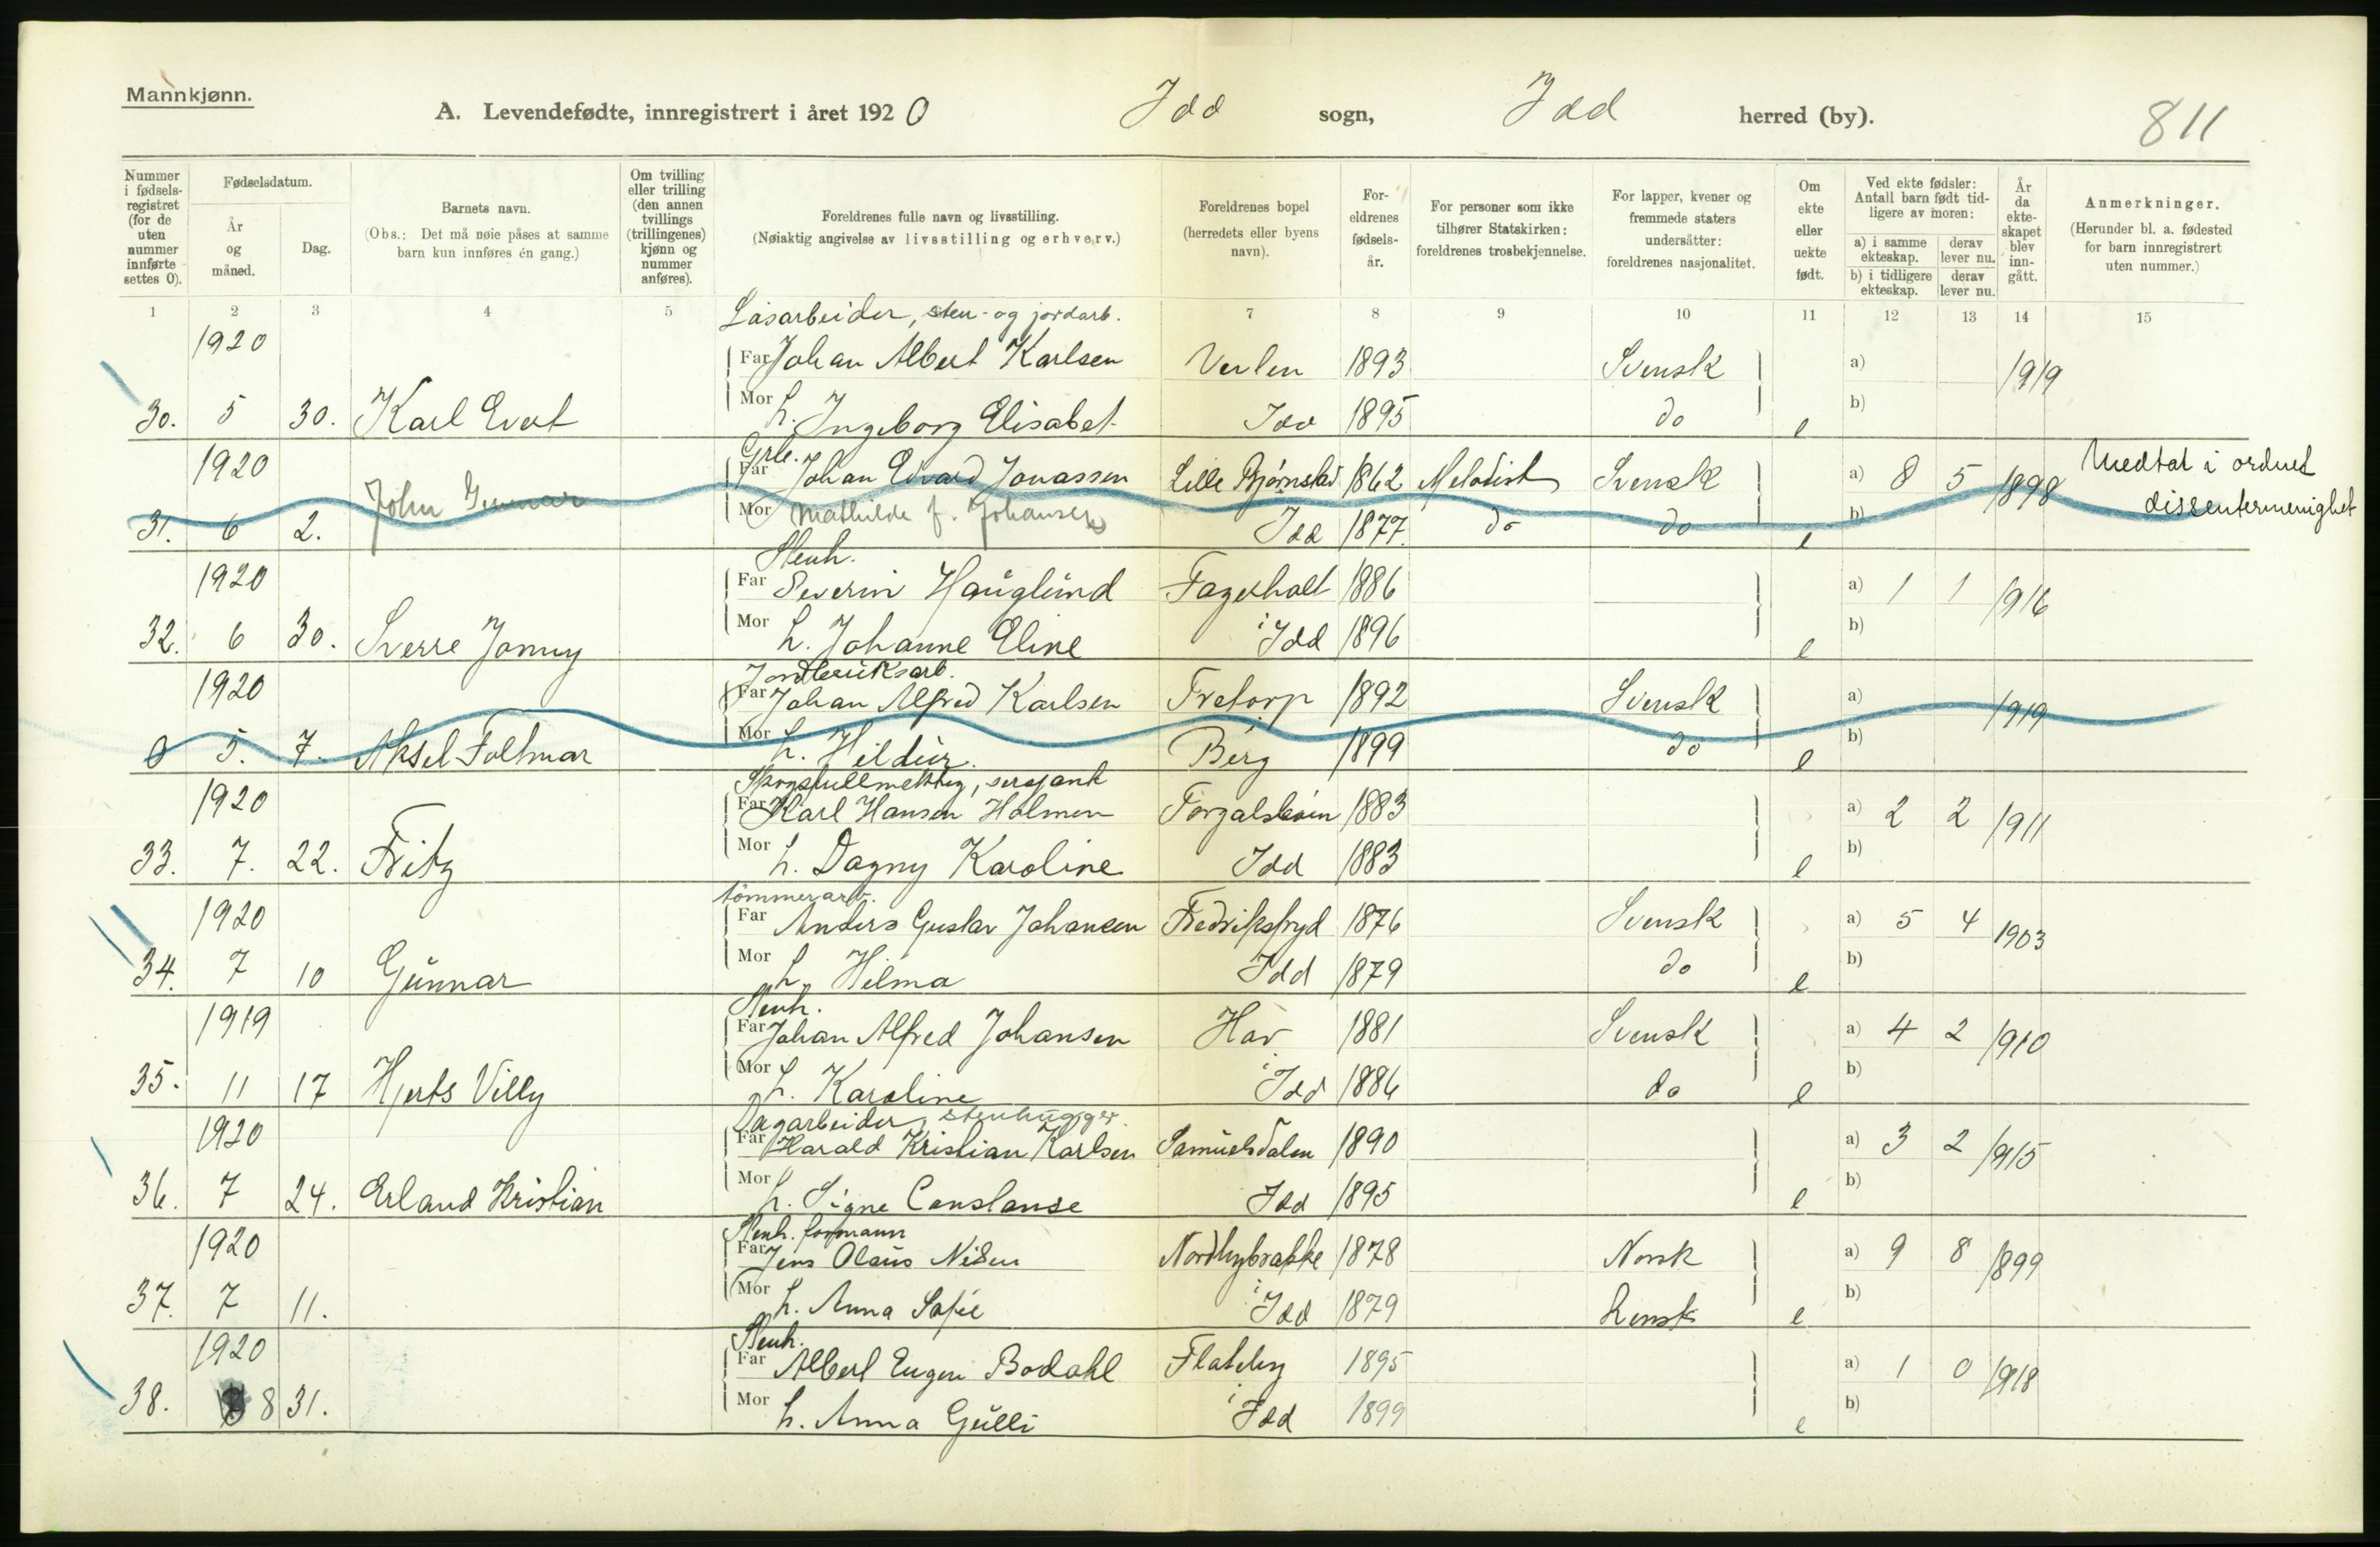 Mannkjønn.
A. Levendefødte, innregistrert i året 1920 Idd sogn, Idd herred (by). 811
Nummer i fødsels-registret (for de uten nummer innførte settes 0).
Fødselsdatum.
År og måned.
Dag.
Barnets navn.
(Obs.: Det må nøie påses at samme barn kun innføres én gang.)
Om tvilling eller trilling (den annen tvillings (trillingenes) kjønn og nummer anføres).
Foreldrenes fulle navn og livsstilling.
(Nøiaktig angivelse av livsstilling og erhverv.)
Foreldrenes bopel (herredets eller byens navn).
For-eldrenes fødsels-år.
For personer som ikke tilhører Statskirken: foreldrenes trosbekjennelse.
For lapper, kvener og fremmede staters undersåtter: foreldrenes nasjonalitet.
Om ekte eller uekte født.
Ved ekte fødsler: Antall barn født tid-ligere av moren:
a) i samme ekteskap. derav lever nu.
b) i tidligere ekteskap. derav lever nu.
År da ekte-skapet blev inn-gått.
Anmerkninger.
(Herunder bl. a. fødested for barn innregistrert uten nummer.)
1 2 3 4 5 7 8 9 10 11 12 13 14 15
Løsarbeider, sten- og jordarb.
1920 Far Johan Albert Karlsen 1893 Svensk a) 1919
30. 5 30. Karl Evert Mor h. Ingeborg Elisabet Idd 1895 do e b)
Grb.
1920 Far Johan Edvard Jonassen Lille Bjørnstad 1862 Metodist Svensk a) 8 5 1898 Medtat i ordnet
31. 6 2. John Gunnar Mor Mathilde f. Johansen Idd 1877 do do e b) dissentermenighet
Stenh.
1920 Far Severin Hauglund Fagerholt 1886 a) 1 1 1916
32. 6 30. Sverre Jonny Mor h. Johanne Eline i Idd 1896 e b)
Jordbruksarb.
1920 Far Johan Alfred Karlsen Tretorp 1892 Svensk a) 1919
0 5. 7. Aksel Foltmar Mor h. Hildur. Berg 1899 do e b)
Skogsfullmektig, sersjant
1920 Far Karl Hansen Holmen 1883 a) 2 2 1911
33. 7. 22. Fritz Mor h. Dagny Karoline Idd 1883 e b)
tømmerarb.
1920 Far Anders Gustav Johansen Fredriksfryd 1876 Svensk a) 5 4 1903
34. 7 10 Gunnar Mor h. Hilma Idd 1879 do e b)
Stenh.
1919 Far Johan Alfred Johansen Hov 1881 Svensk a) 4 2 1910
35. 11 17 Herts Villy Mor h. Karoline i Idd 1886 do e b)
Dagarbeider, stenhugger.
1920 Far Harald Kristian Karlsen Samuelsdalen 1890 a) 3 2 1915
36. 7 24. Erland Kristian Mor h. Signe Constanse Idd 1895 e b)
Stenh. formann
1920 Far Jens Olaus Nilsen 1878 Norsk a) 9 8 1899
37. 7 11. Mor h. Anna Sofie i Idd 1879 e b)
Stenh.
1920 Far Albert Eugen Bodahl Flateby 1895 a) 1 0 1918
38. 8 31. Mor h. Anna Gulli i Idd 1899 e b)